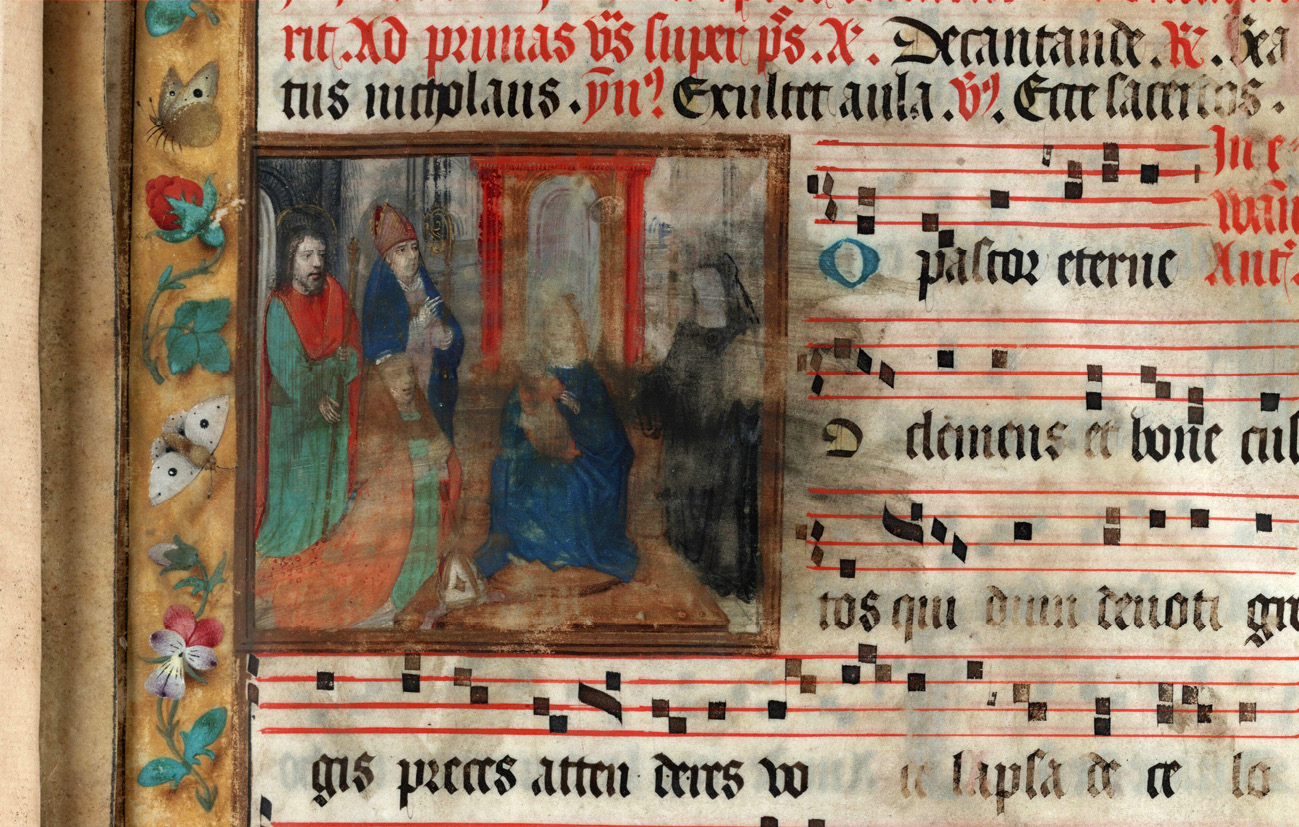 rit. Ad primas v̄s super p̄s. A͞. Decantande. R͞. Bea
tus nicholaus. yn̄ꝰ Exultet aula. v̄ꝰ. Ecce sacerdos.
In e
wan̄
O pastor eterne Ant̄.
O clemens et bone cus
tos qui dum deuoti gre
gis preces atten deres vo ce lapsa de ce lo